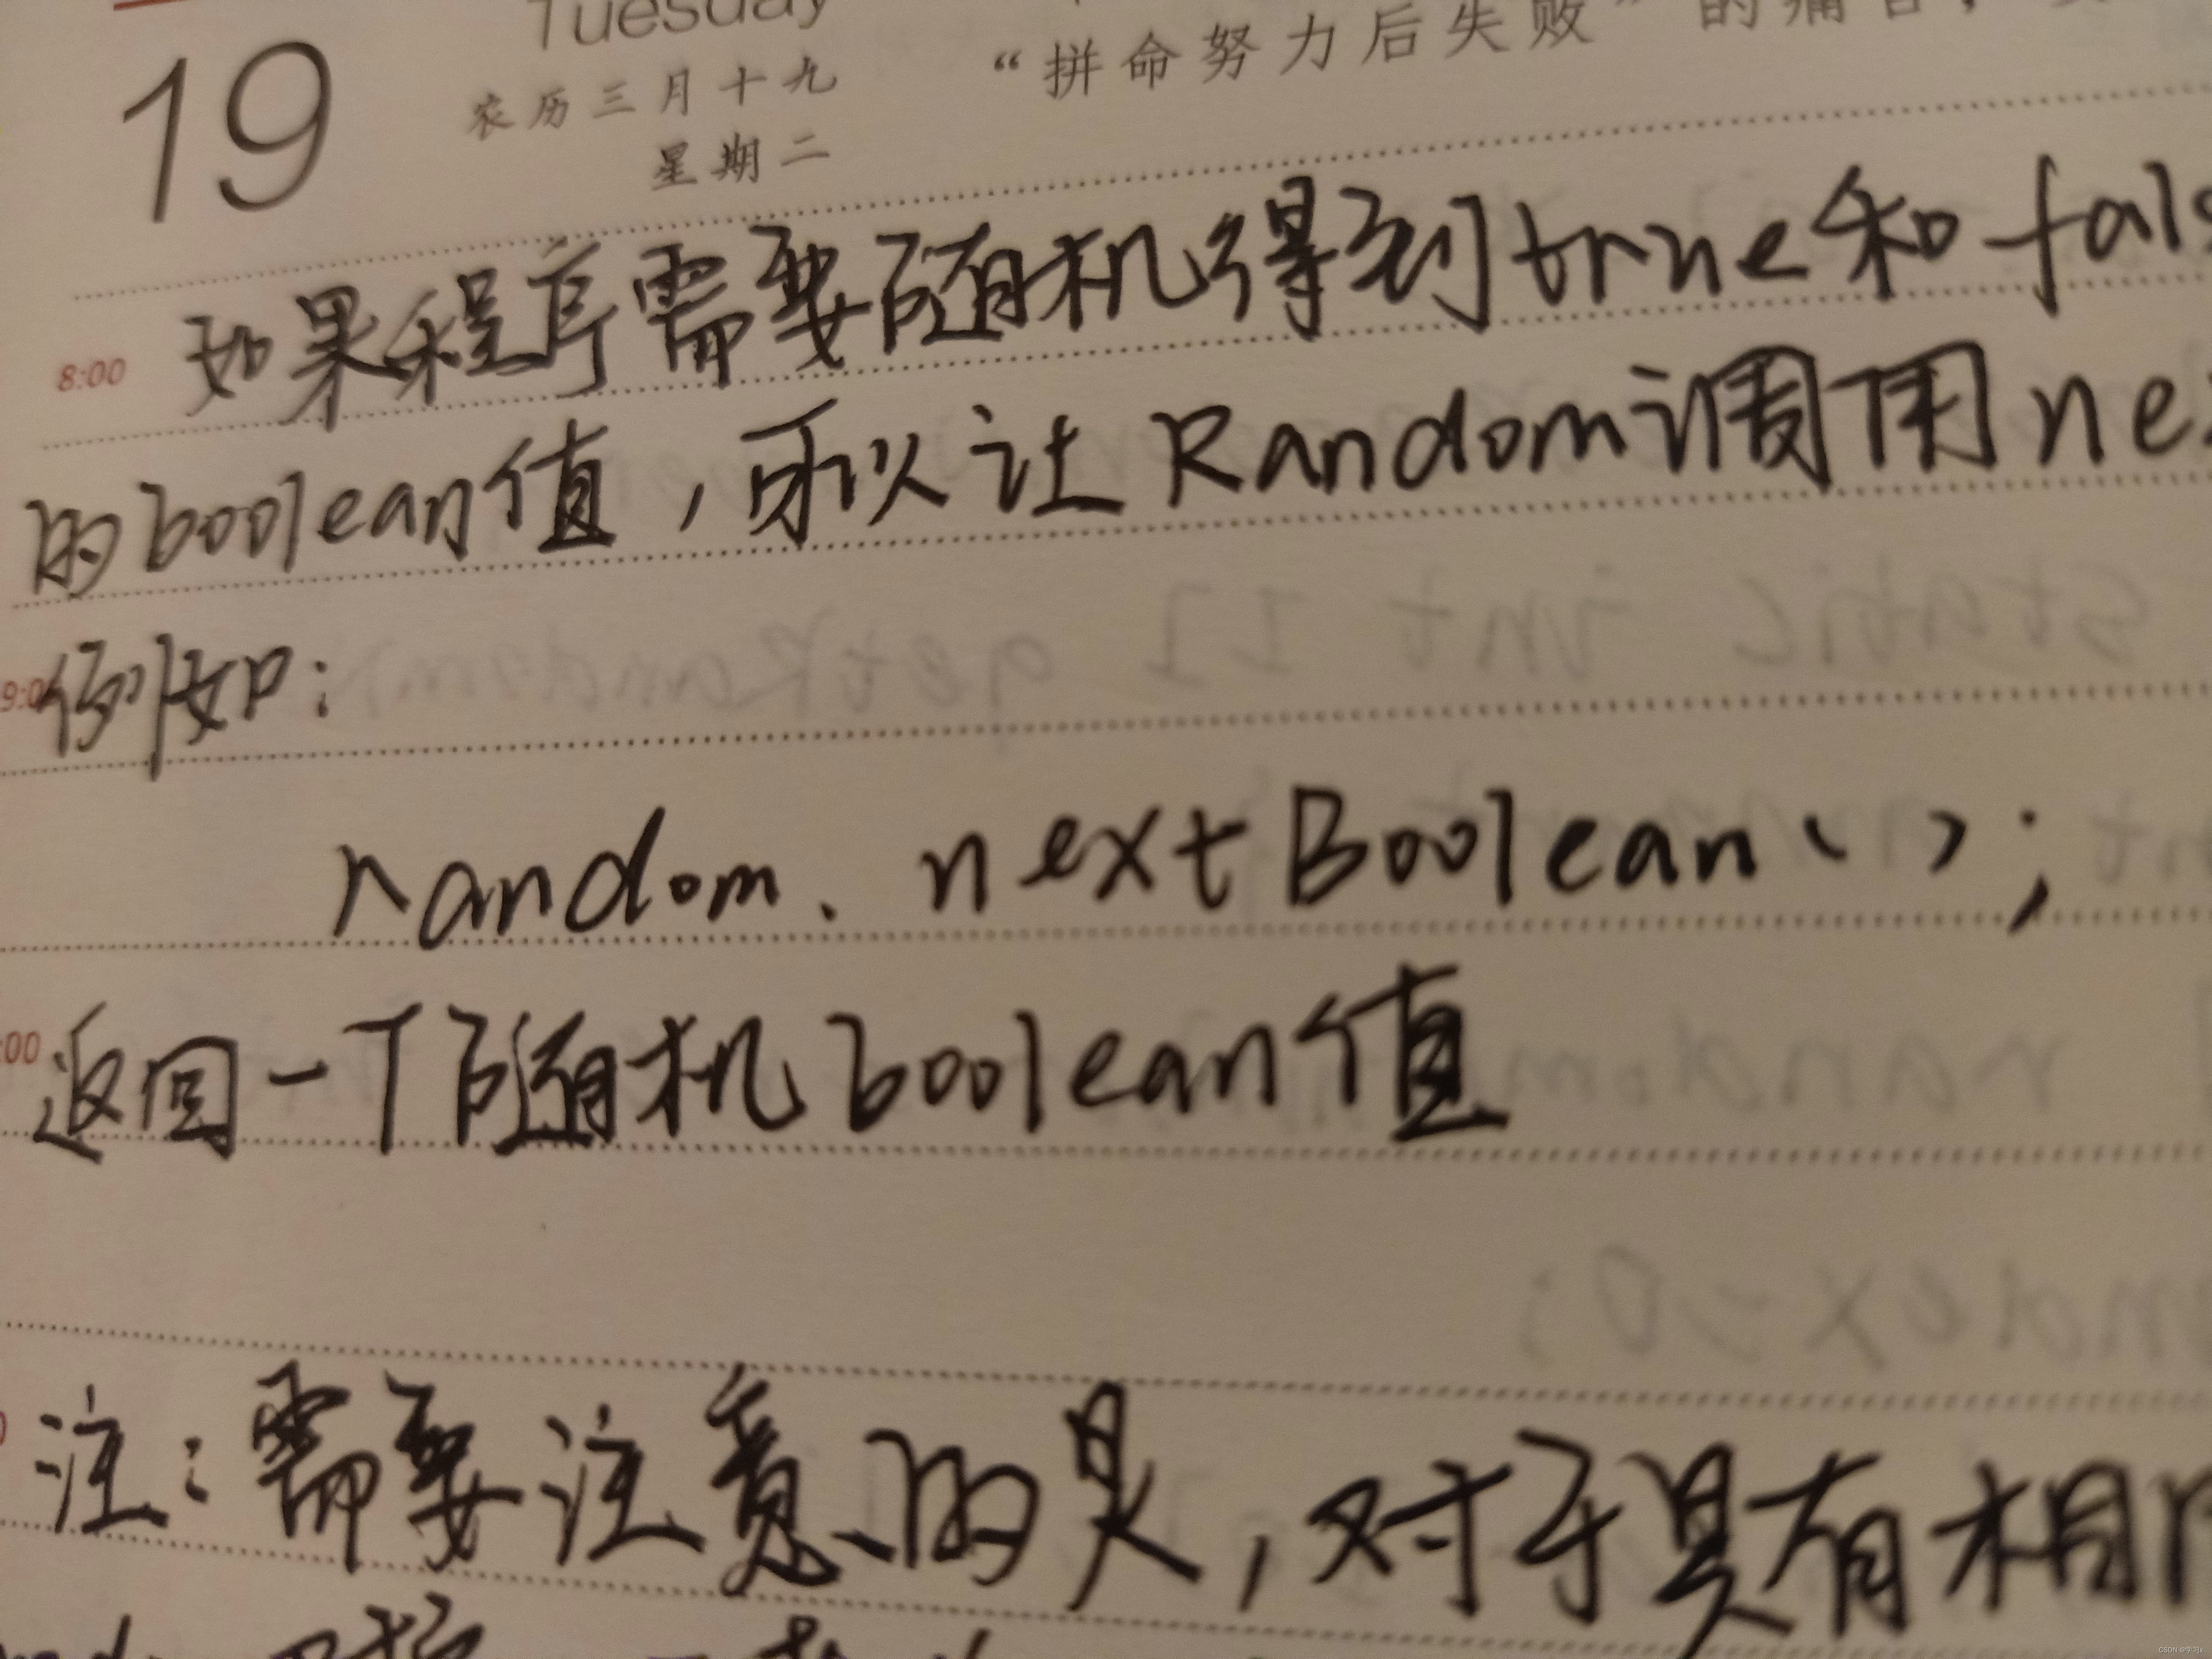 Tuesday
19
农历三月十九
星期二
“拼命努力后失败”的痛苦，
8:00 如果程序需要随机得到true和fals
的boolean值，可以让Random调用nex
例如：
random.nextBoolean();
:00 返回一个随机boolean值
注：需要注意的是，对于具有相同
CSDN @学习x